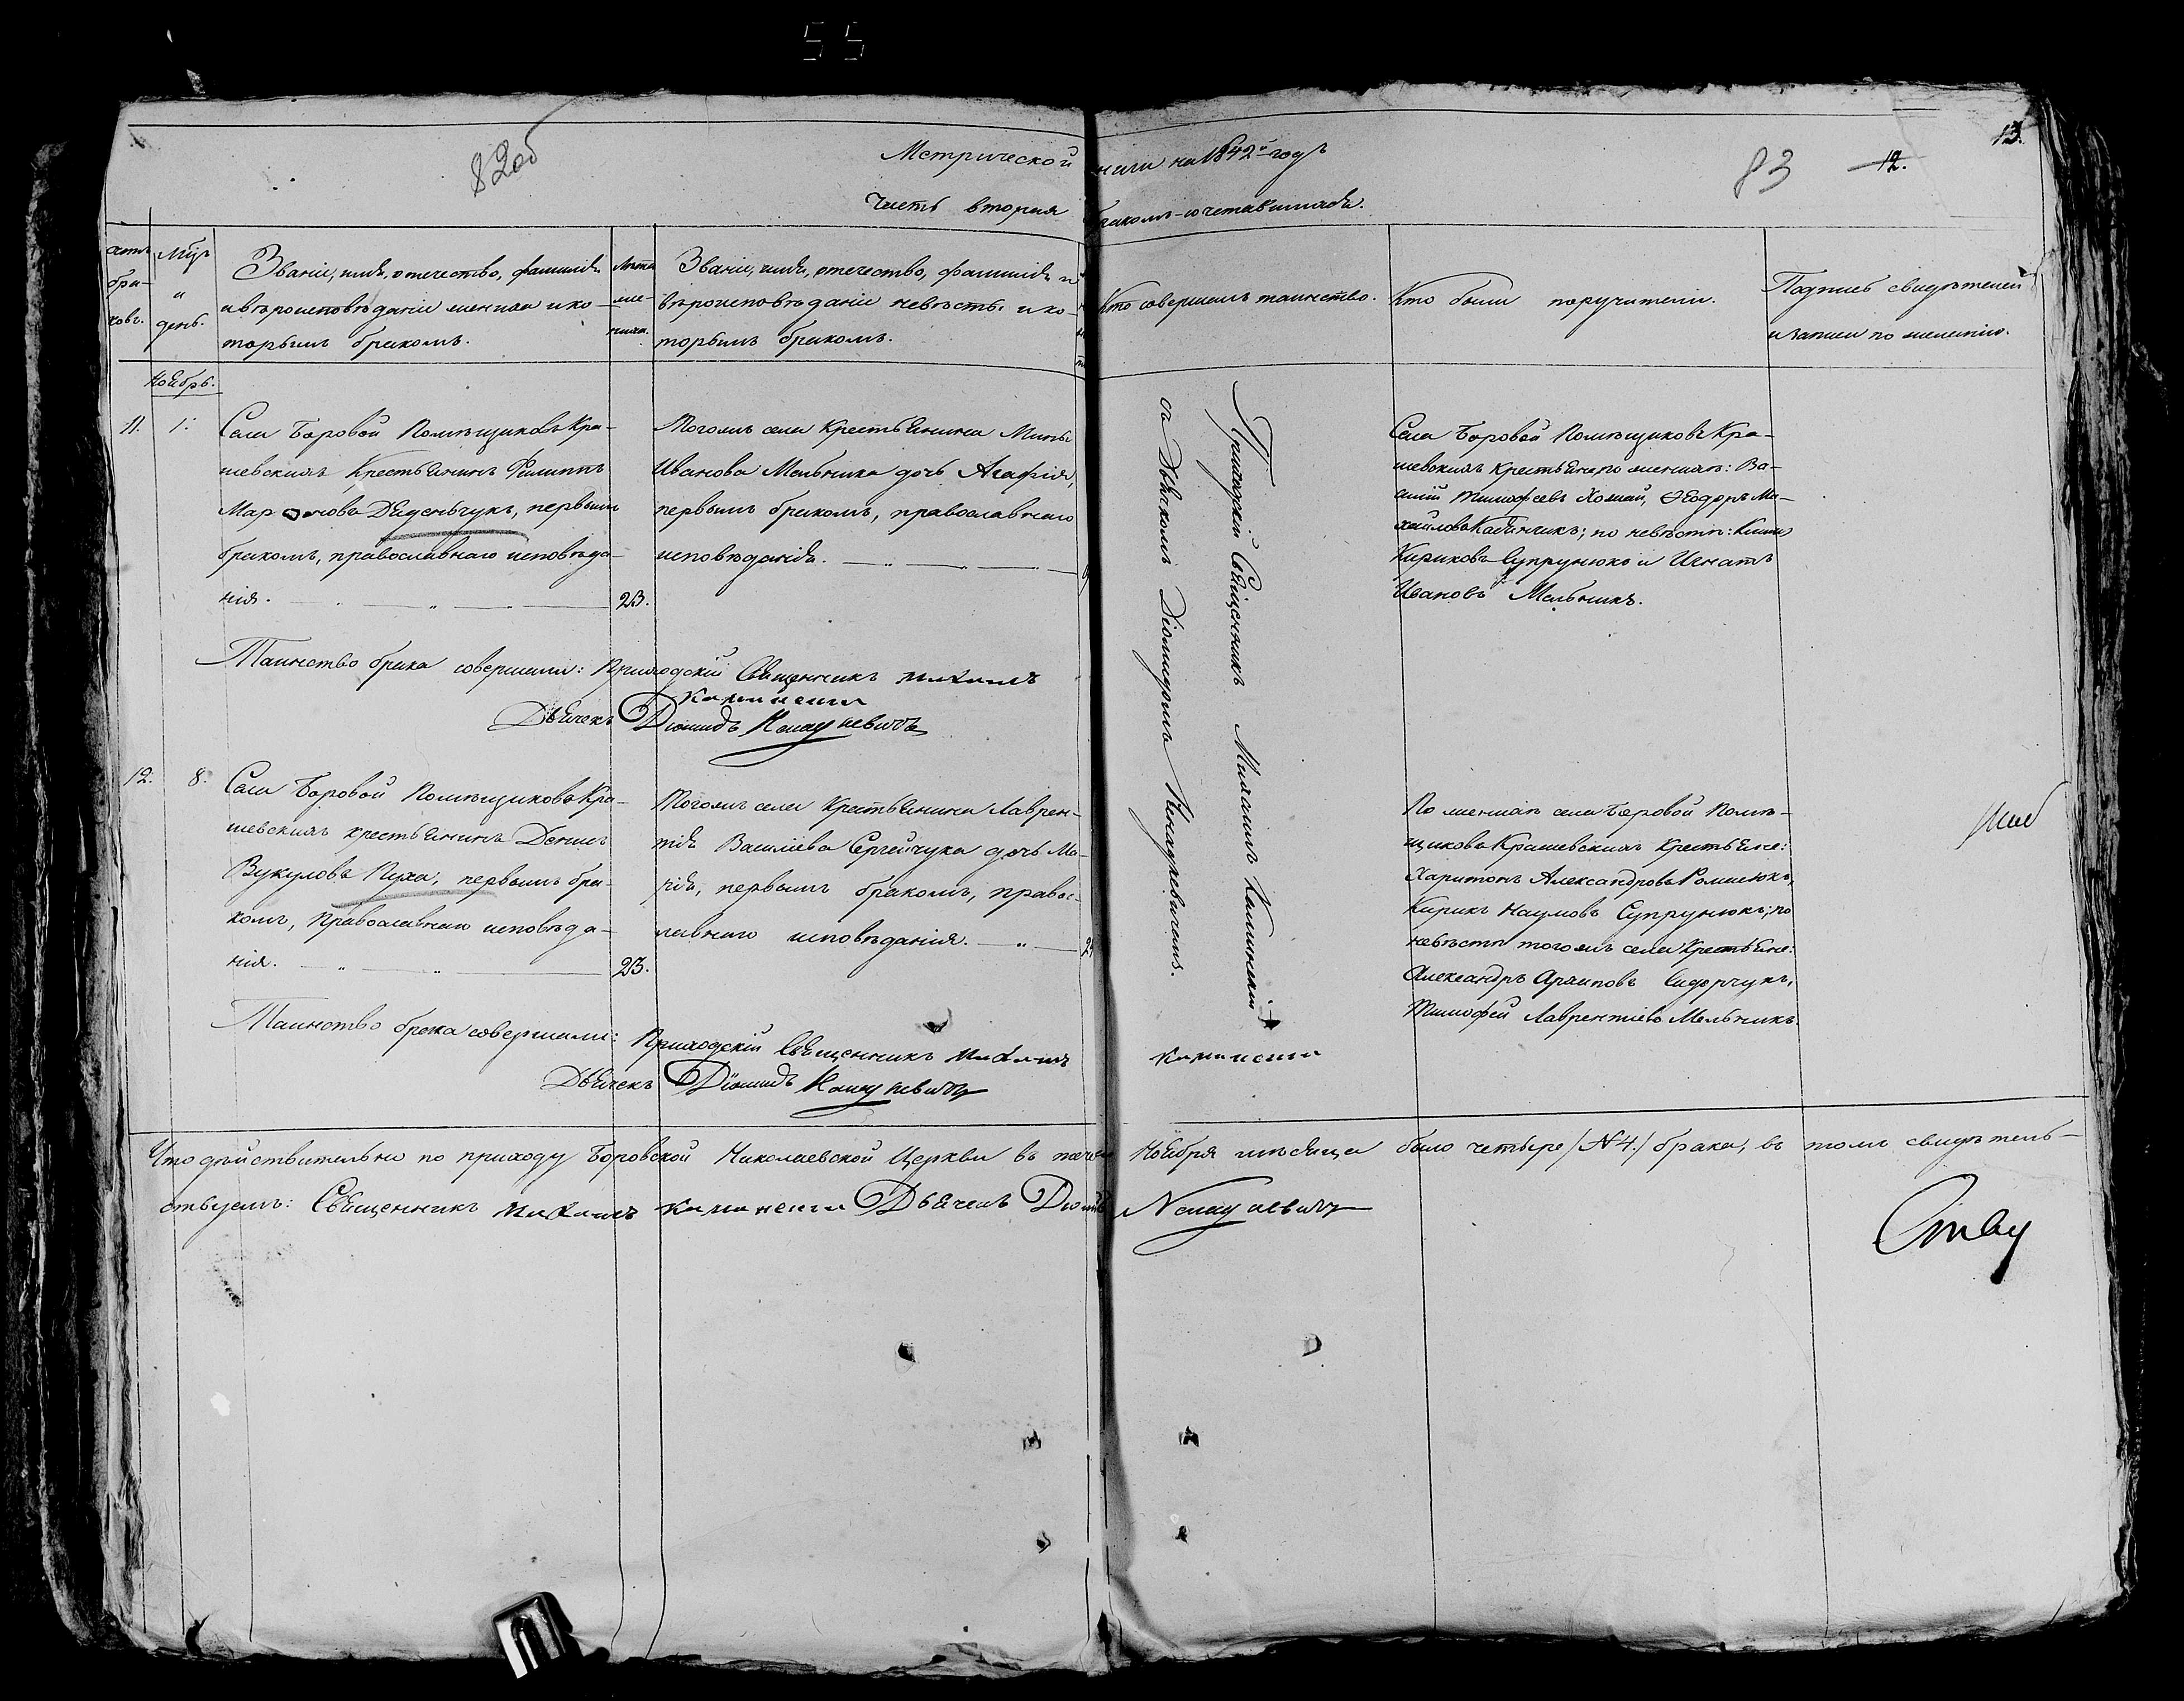 55
82об
Метрической книги на 1842й годъ
83
12.
13.
Часть вторая бракомъ сочетавшихся.
Счетъ браковъ.
Мѣсяцъ и день.
Званіе, имя, отечество, фамилія
и вѣроисповѣданіе жениха и ко-
торымъ бракомъ.
Лѣта
же-
ниха.
Званіе, имя, отечество, фамилія и
вѣроисповѣданіе невѣсты и ко-
торымъ бракомъ.
Кто совершалъ таинство.
Кто были поручители.
Подпись свидѣтелей
и записи по желанію.
Ноябрь.
11.
1.
Села Боровой Помѣщиковъ Кра-
шевскихъ Крестьянинъ Филиппъ
Мар оновъ Дѣденьчукъ, первымъ
бракомъ, православнаго исповѣда-
нія.
23.
Тогожъ села Крестьянина Мины
Иванова Мельника дочь Агафія,
первымъ бракомъ, православнаго
исповѣданія.
Приходскій Священникъ Михаилъ Калинскій
съ Дьякомъ Діомидомъ
Села Боровой Помѣщиковъ Кра-
шевскихъ крестьяне по женихѣ: Ва-
силій Тимофеевъ Хомяй, Ѳеодоръ Ми-
хайловъ Кабанчикъ; по невѣстѣ: Климъ
Кириковъ Супрунюкъ и Игнатъ
Ивановъ Мельникъ.
Таинство брака совершали: Приходскій Священникъ Михаилъ
Калинскій
Дьячокъ Діомидъ
12.
8.
Села Боровой Помѣщиковъ Кра-
шевскихъ крестьянинъ Денисъ
Вукуловъ Пуха, первымъ бра-
комъ, Православнаго исповѣда-
нія.
23.
Тогожъ села Крестьянина Лаврен-
тія Василіева Сергейчука дочь Ма-
рія, первымъ бракомъ, правос-
лавнаго исповѣданія.
По женихѣ села Боровой Помѣ-
щиковъ Крашевскихъ Крестьяне:
Харитонъ Александровъ Романюкъ,
Кирикъ Наумовъ Супрунюкъ; по
невѣстѣ тогожъ села Крестьяне:
Александръ Архиповъ Сидорчукъ,
Тимофей Лаврентіевъ Мельникъ.
Таинство брака совершали: Приходскій Священникъ Михаилъ Калинскій
Дьячекъ Діомидъ
Что дѣйствительно по приходу Боровской Николаевской Церкви въ теченіи Ноября мѣсяца было четыре /№ 4./ брака, въ томъ свидѣтель-
ствуемъ: Священникъ Михаилъ Калинскій Дьячекъ Діомидъ